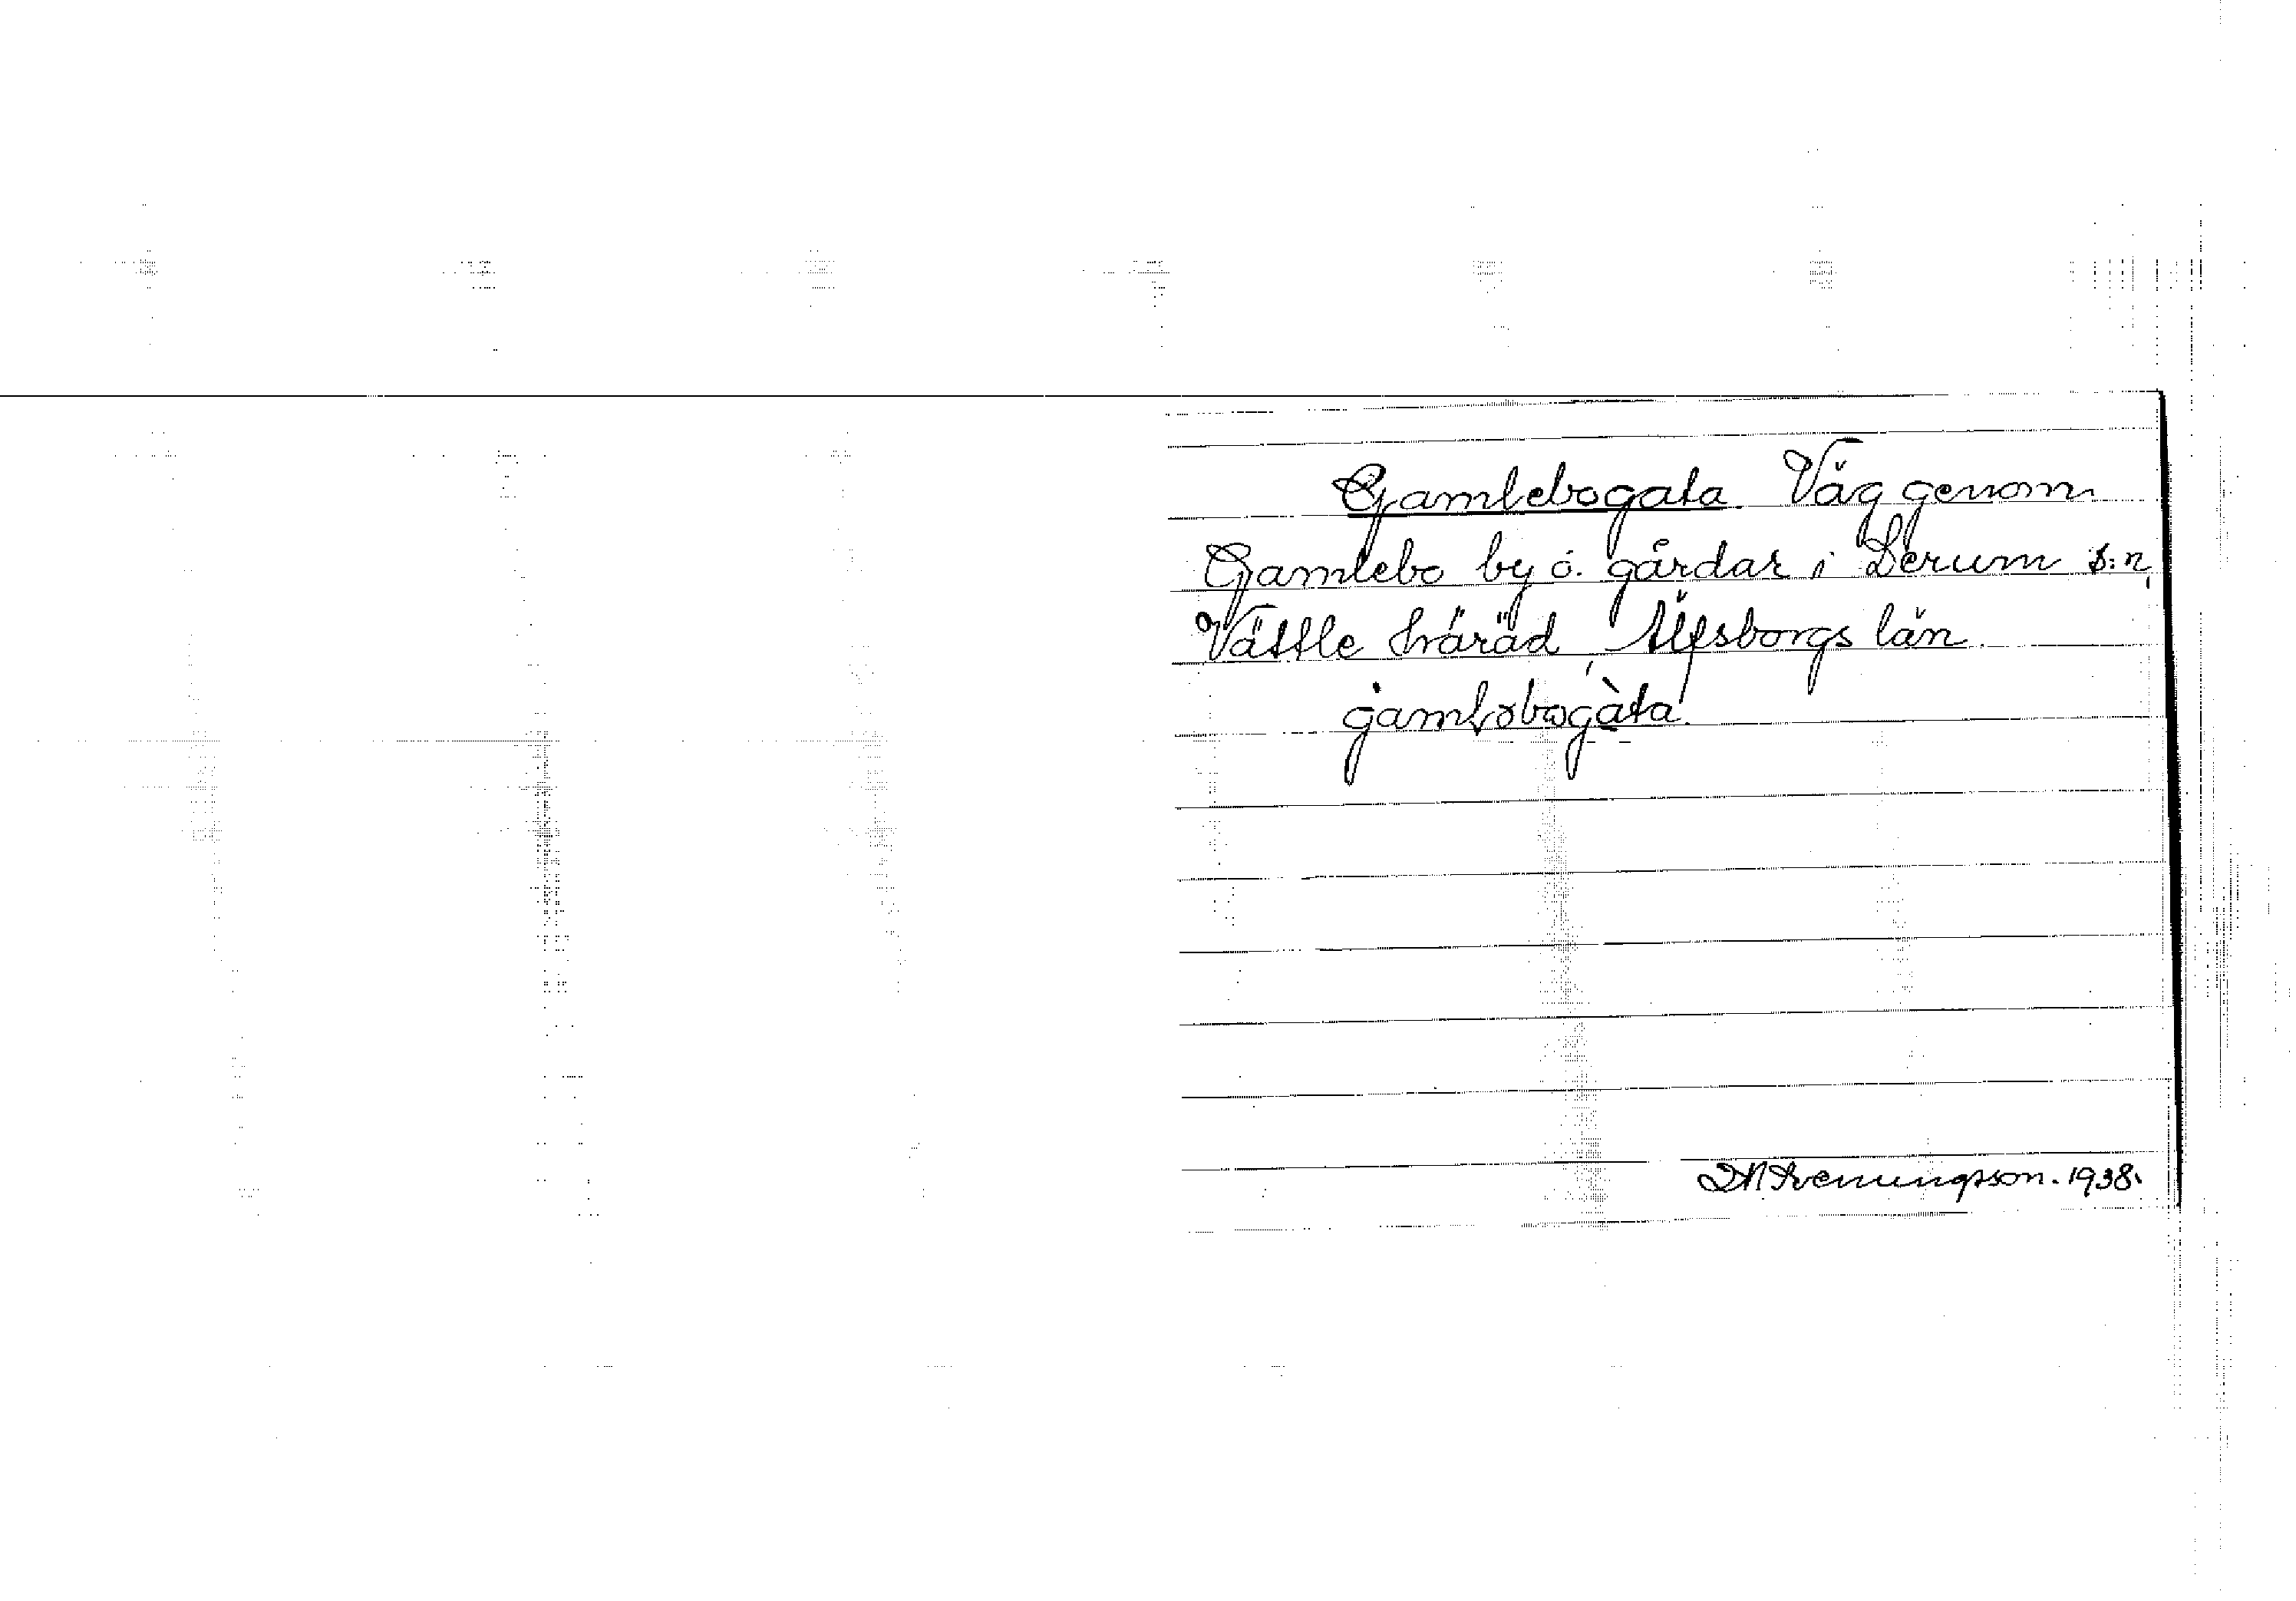 Gamlebogata Väg genom
Gamlebo by o. gårdar i Lerum s:n,
Vättle häräd, Älfsborgs län.
gamləbogàta.
1938.